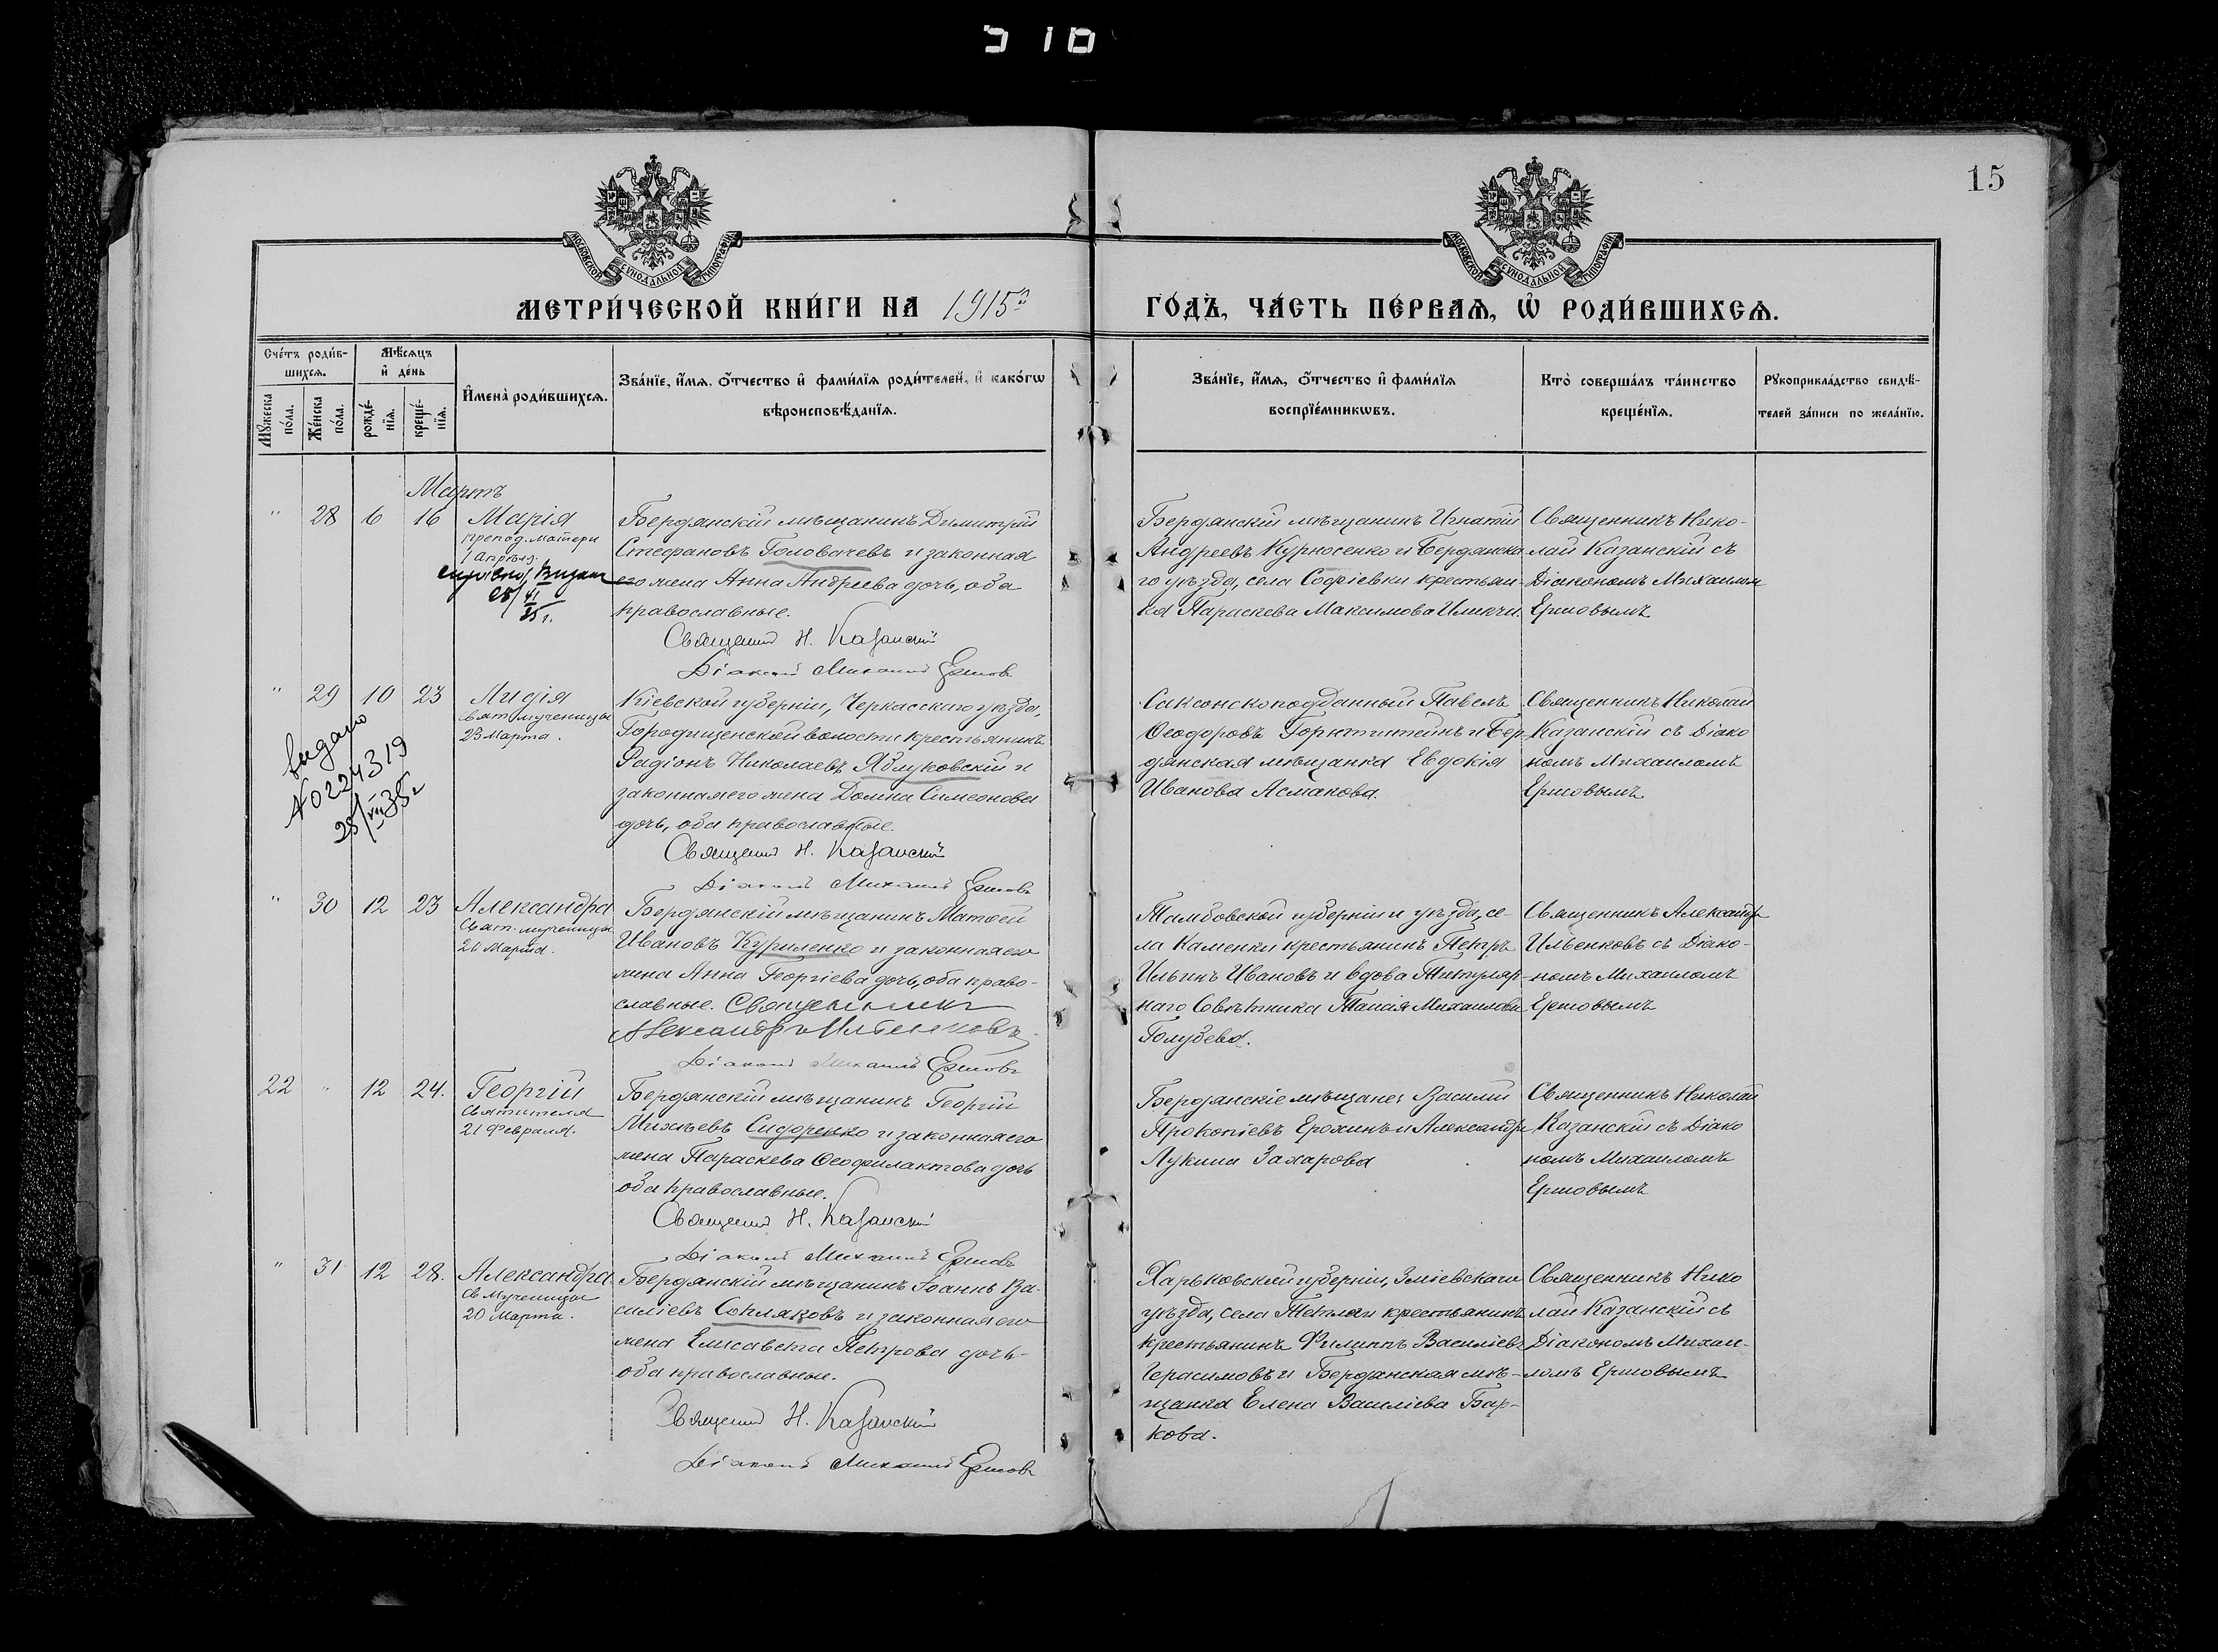 310
15
МОСКОВСКОЙ СУНОДАЛЬНОЙ ТИПОГРАФІИ
МОСКОВСКОЙ СУНОДАЛЬНОЙ ТИПОГРАФІИ
МЕТРИ́ЧЕСКОЙ КНИ́ГИ НА 1915й
ГО́ДЪ, ЧА́СТЬ ПЕ́РВАЯ, Ѡ҆ РОДИ́ВШИХСЯ.
Сче́тъ роди́в-
шихся.
Мѣ́сяцъ
и҆ де́нь
Мꙋ́жеска по́ла.
Же́нска по́ла.
рожде́-
нїя.
креще́-
нїя.
И҆мена̀ роди́вшихся.
Зва́нїе, и҆́мя, ѻ҆́тчество и҆ фами́лїя роди́телей, и҆ како́гѡ
вѣроисповѣ́данїя.
Зва́нїе, и҆́мя, ѻ҆́тчество и҆ фами́лїя
воспрїе́мникѡвъ.
Кто̀ соверша́лъ та́инство
креще́нїя.
Рꙋкоприкла́дство свидѣ́-
телей за́писи по жела́нїю.
Мартъ
" 28 6 16 Марія
препод. матери
1 Апрѣля.
25/VI
35 г.
Бердянскій мѣщанинъ Димитрій
Стефановъ Головачевъ и законная
его жена Анна Андреева дочь, оба
православные.
Священникъ Н. Казанскій
Діаконъ Михаилъ Ершовъ
Бердянскій мѣщанинъ Игнатій
Андреевъ Курносенко и Бердянска
го уѣзда, села Софіевки крестьян-
ка Параскева Максимова
Священникъ Нико-
лай Казанскій съ
Діакономъ Михаилом
Ершовымъ
" 29 10 23 Лидія
Свят. мученицы
23 Марта.
выдано
№ 0224319
25/VII 35 г
Кіевской губерніи, Черкасскаго уѣзда,
Городищенской волости крестьянинъ
Радіонъ Николаевъ Яблуковскій и
законная его жена Домна Симеонова
дочь, оба православные.
Священникъ Н. Казанскій
Діаконъ Михаилъ Ершовъ
Саксонскоподданный Павелъ
Ѳеодоровъ Горнштейнъ и Бер-
дянская мѣщанка Евдокія
Иванова Асманова.
Священникъ Николай
Казанскій съ Діако
номъ Михаиломъ
Ершовымъ
" 30 12 23 Александра
Свят. мученицы
20 Марта.
Бердянскій мѣщанинъ Матѳей
Ивановъ Куриленко и законная его
жена Анна Георгіева дочь, оба право-
славные. Священникъ
Александръ Ильенковъ
Діаконъ Михаилъ Ершовъ
Тамбовской губерніи и уѣзда, се-
ла Каменки крестьянинъ Петръ
Ильинъ Ивановъ и вдова Титуляр-
наго Совѣтника Таисія Михаилова
Голубева.
Священникъ Александръ
Ильенковъ съ Діако-
номъ Михаиломъ
Ершовымъ
22 " 12 24. Георгій
Святителя
21 Февраля.
Бердянскій мѣщанинъ Георгій
Михѣевъ Сидоренко и законная его
жена Параскева Ѳеофилактова дочь
оба православные.
Священникъ Н. Казанскій
Діаконъ Михаилъ Ершовъ
Бердянскіе мѣщане: Василій
Прокопіевъ Ерохинъ и Александра
Лукина Захарова
Священникъ Николай
Казанскій съ Діако
номъ Михаиломъ
Ершовымъ
" 31 12 28. Александра
Св. Мученицы
20 Марта.
Бердянскій мѣщанинъ Іоаннъ Ва-
силіевъ Сопляковъ и законная его
жена Елисавета Петрова дочь-
оба православные.
Священникъ Н. Казанскій
Діаконъ Михаилъ Ершовъ
Харьковской губерніи, Зміевскаго
уѣзда, села крестьянинъ
крестьянинъ Филиппъ Василіевъ
Герасимовъ и Бердянская мѣ-
щанка Елена Василіева Бар-
кова.
Священникъ Нико
лай Казанскій съ
Діакономъ Михаи-
ломъ Ершовымъ